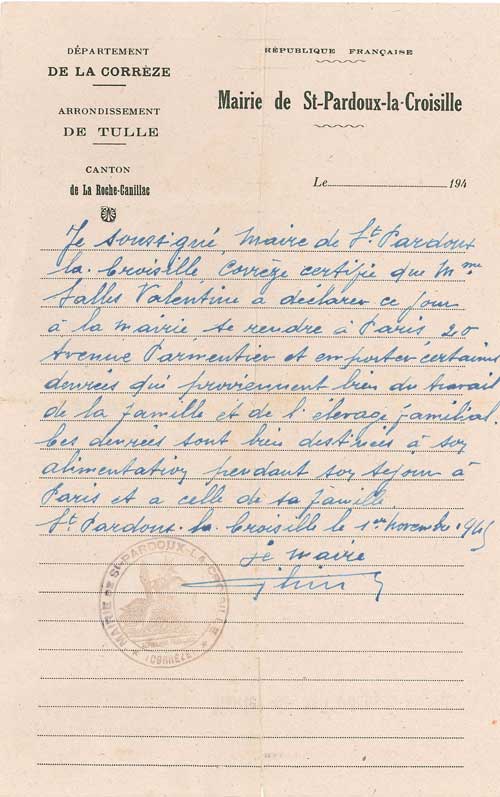 DÉPARTEMENT
DE LA CORRÈZE
ARRONDISSEMENT
DE TULLE
CANTON
de La Roche-Canillac
RÉPUBLIQUE FRANÇAISE
Mairie de St-Pardoux-la-Croisille
Le 194
Je soussigné, Maire de St. Pardoux
la. Croisille, Corrèze certifie que Mme
Salles Valentine a déclarer ce jour
à la mairie se rendre à Paris 20
Avenue Parmentier et emporter certaines
denrées qui proviennent bien du travail
de la famille et de l'élevage familial.
Ces denrées sont bien destinées à son
alimentation pendant son séjour à
Paris et a celle de sa famille
St. Pardoux. la. Croisille le 1er novembre 1945
Le maire
MAIRIE DE ST-PARDOUX-LA-CROISILLE
(CORRÈZE)